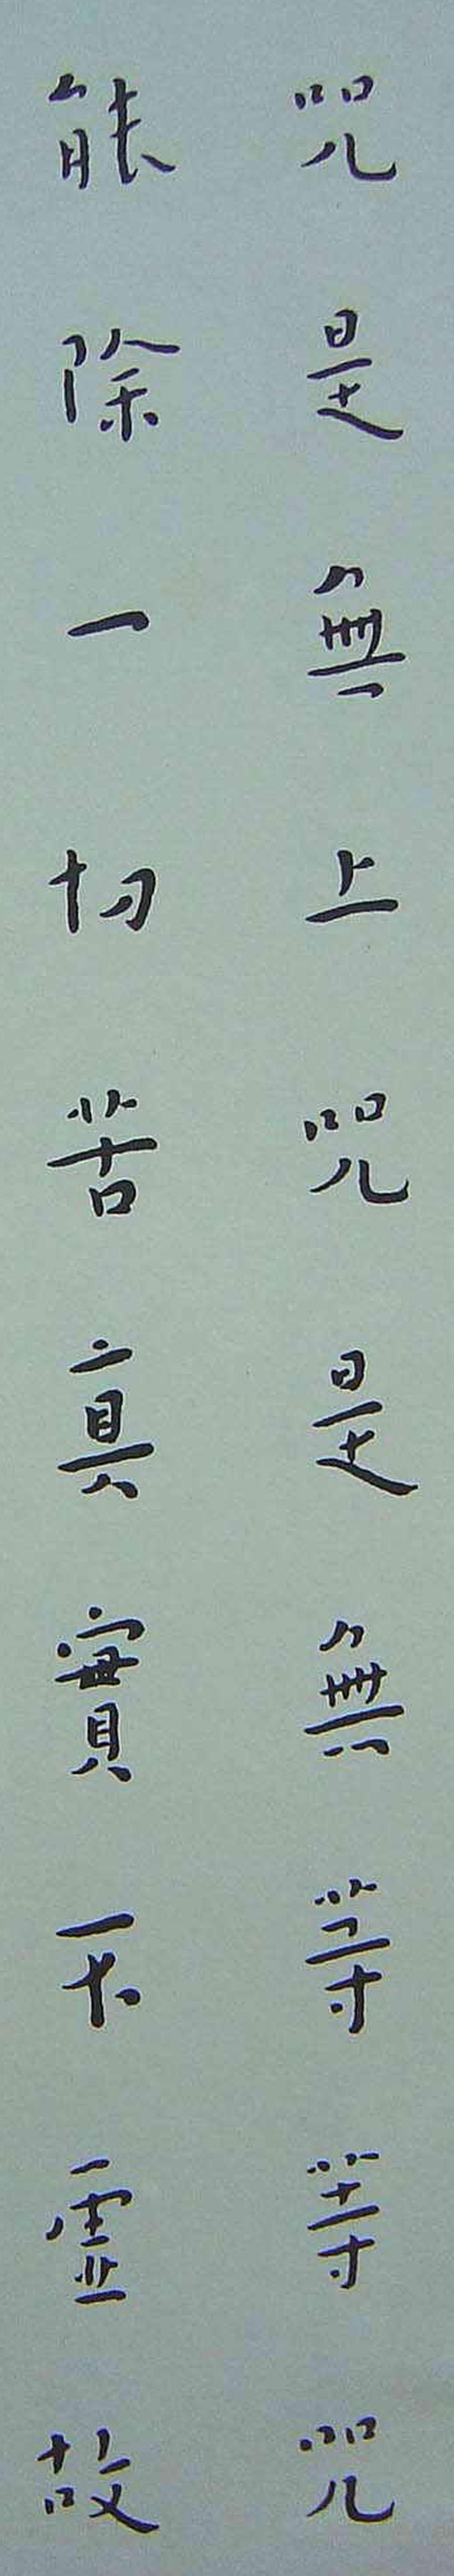 咒是無上咒是無等等咒
能除一切苦真實不虛故